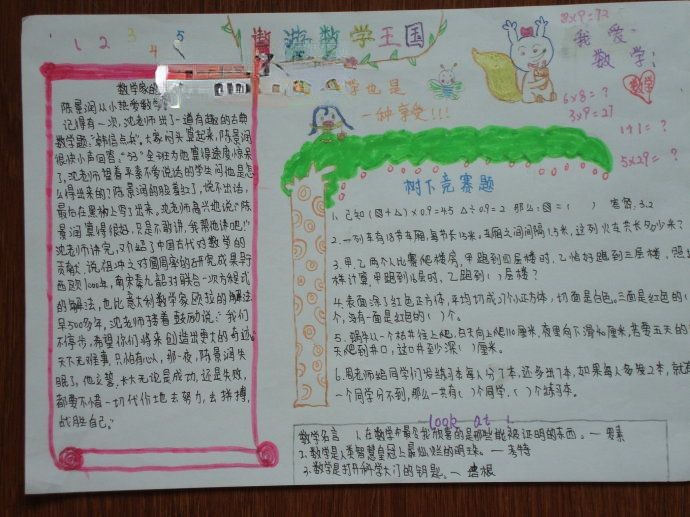 1 2 3 4 5
遨游数学王国
8×9=72
我爱
数学:
数学
学也是
一种享受!!!
6×8=?
3×9=27
1+1=?
5×29=?
数学家的
陈景润从小热爱数学
记得有一次,沈老师出了一道有趣的古典
数学题:"韩信点兵"。大家闷头算起来,陈景润
很快小声回答:"53"全班为他算得速度惊呆
了,沈老师望着平素不爱说话的学生问他是怎
么得出来的?陈景润的脸羞红了,说不出话,
最后在黑板上写了出来,沈老师高兴地说:"陈
景润算得很好,只是不敢讲,我帮他讲吧!"
沈老师讲完,又介绍了中国古代对数学的
贡献,说祖冲之对圆周率的研究成果早于
西欧1000年,南宋秦九韶对联合一次方程式
的解法,也比意大利数学家欧拉的解法
早500多年,沈老师接着鼓励说:"我们
不停步,希望你们将来创造出更大的奇迹。
天下无难事,只怕有心人,那一夜,陈景润失
眠了,他立誓:长大无论是成功,还是失败,
都要不惜一切代价地去努力,去拼搏,
战胜自己。"
树下竞赛题
1、已知(□+△)×0.9=4.5 △÷0.9=2 那么:□=( ) 答案:3.2
2、一列车有18节车厢,每节长15米,车厢之间间隔1.5米,这列火车共长多少米?
3、甲、乙两个人比赛爬楼房,甲跑到四层楼时,乙恰好跑到三层楼,照
样计算,甲跑到16层时,乙跑到( )层楼?
4、表面涂了红色正方体,平均切成27个小正方体,切面是白色。三面是红色的(
个,没有一面是红色的( )个。
5、蜗牛从一个枯井往上爬,白天向上爬110厘米,夜里向下滑40厘米,若要五天的
天爬到井口,这口井至少深( )厘米。
6、周老师给同学们发练习本每人分7本,还多出7本,如果每人多发2本,就有
一个同学分不到,那么一共有( )个同学,( )个练习本。
look at
数学名言 1、在数学中最令我欣喜的是那些能被证明的东西。—罗素
2、数学是人类智慧皇冠上最灿烂的明珠。—考特
3、数学是打开科学大门的钥匙。—培根